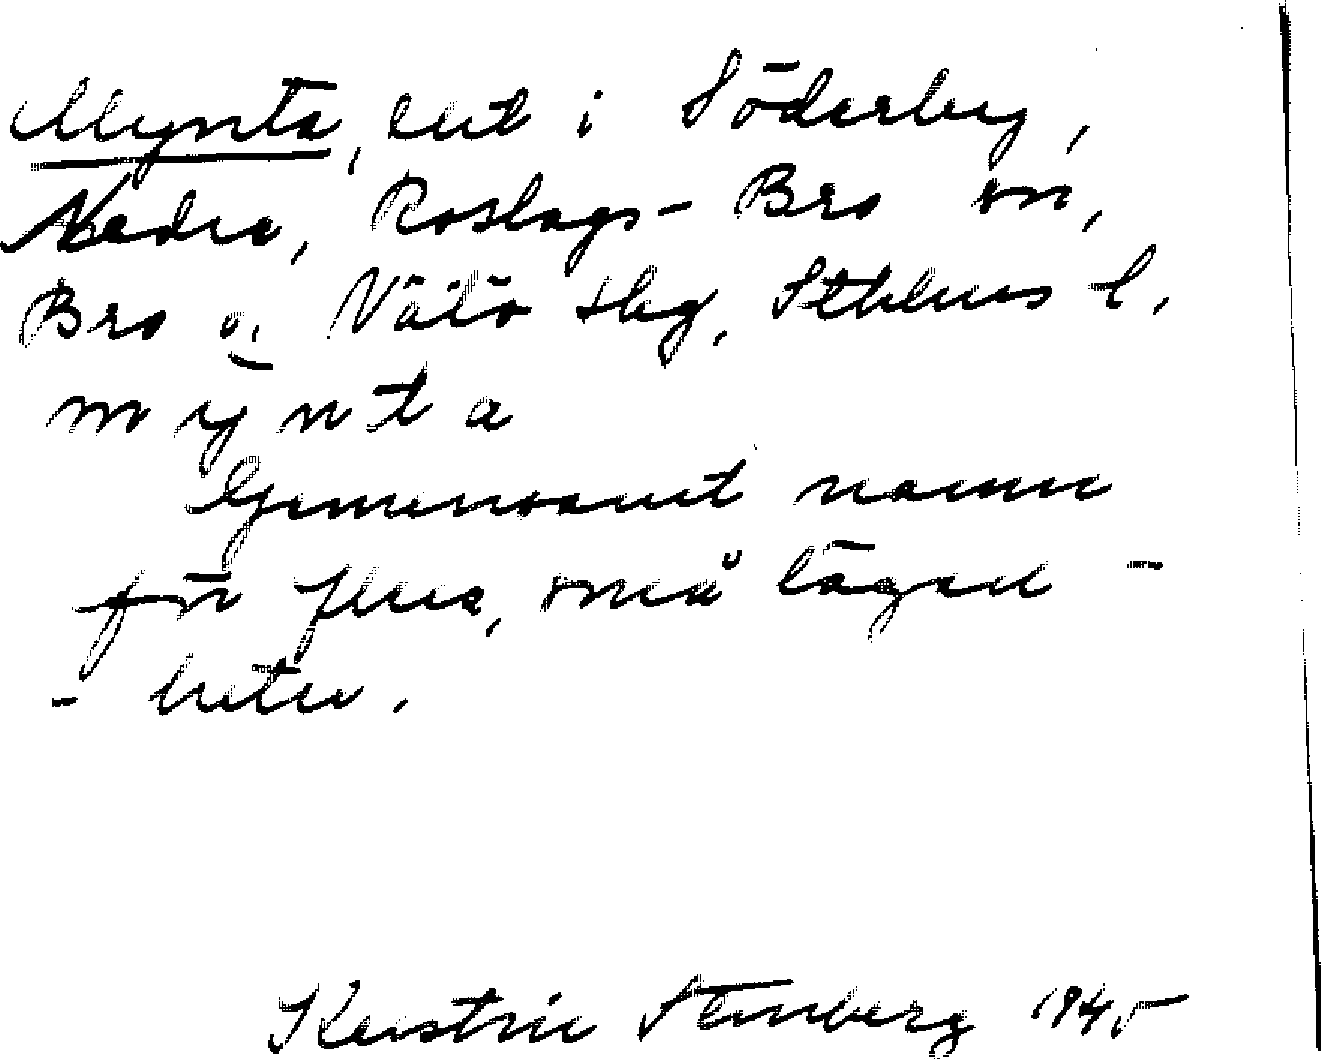 Mynta, del i Söderby,
Nedra, Roslags-Bro sn,
Bro o. Vätö skg, Sthlms l.
mynta
Gemensamt namn
för flera, små lägen-
- heter.
Kerstin Stenberg 1945